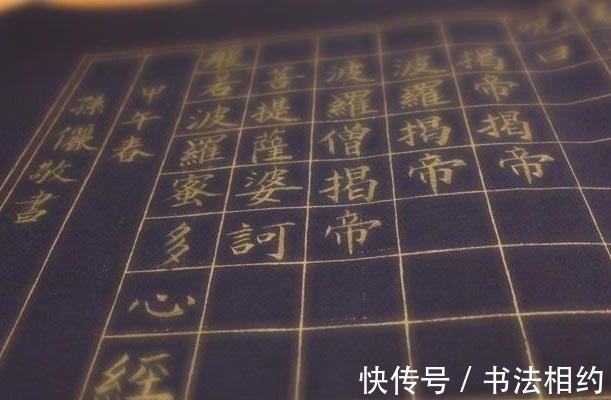 呪曰
揭帝揭帝
波羅揭帝
波羅僧揭帝
菩提薩婆訶
般若波羅蜜多心經
甲午春
孫儷敬書
快传号 / 书法相约